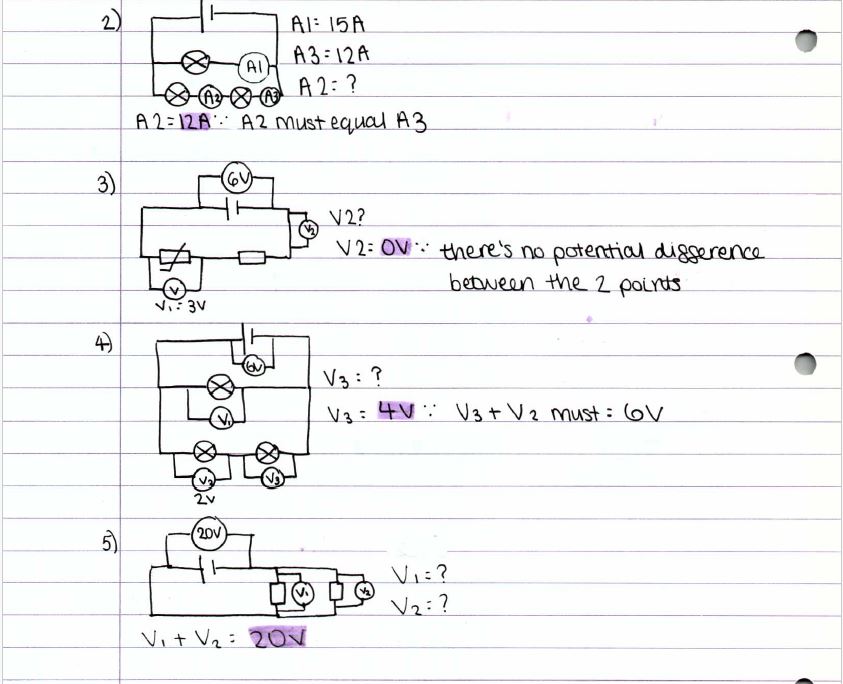 2)
A1 = 15A
A3 = 12A
A1
A2 = ?
A2
A3
A2 = 12A ∵ A2 must equal A3
3)
6V
V2?
V2
V2 = 0V ∵ there's no potential difference
between the 2 points
V
V1 = 3V
4)
6V
V3 = ?
V1
V3 = 4V ∵ V3 + V2 must = 6V
V2
V3
2V
5)
20V
V1
V2
V1 = ?
V2 = ?
V1 + V2 = 20V